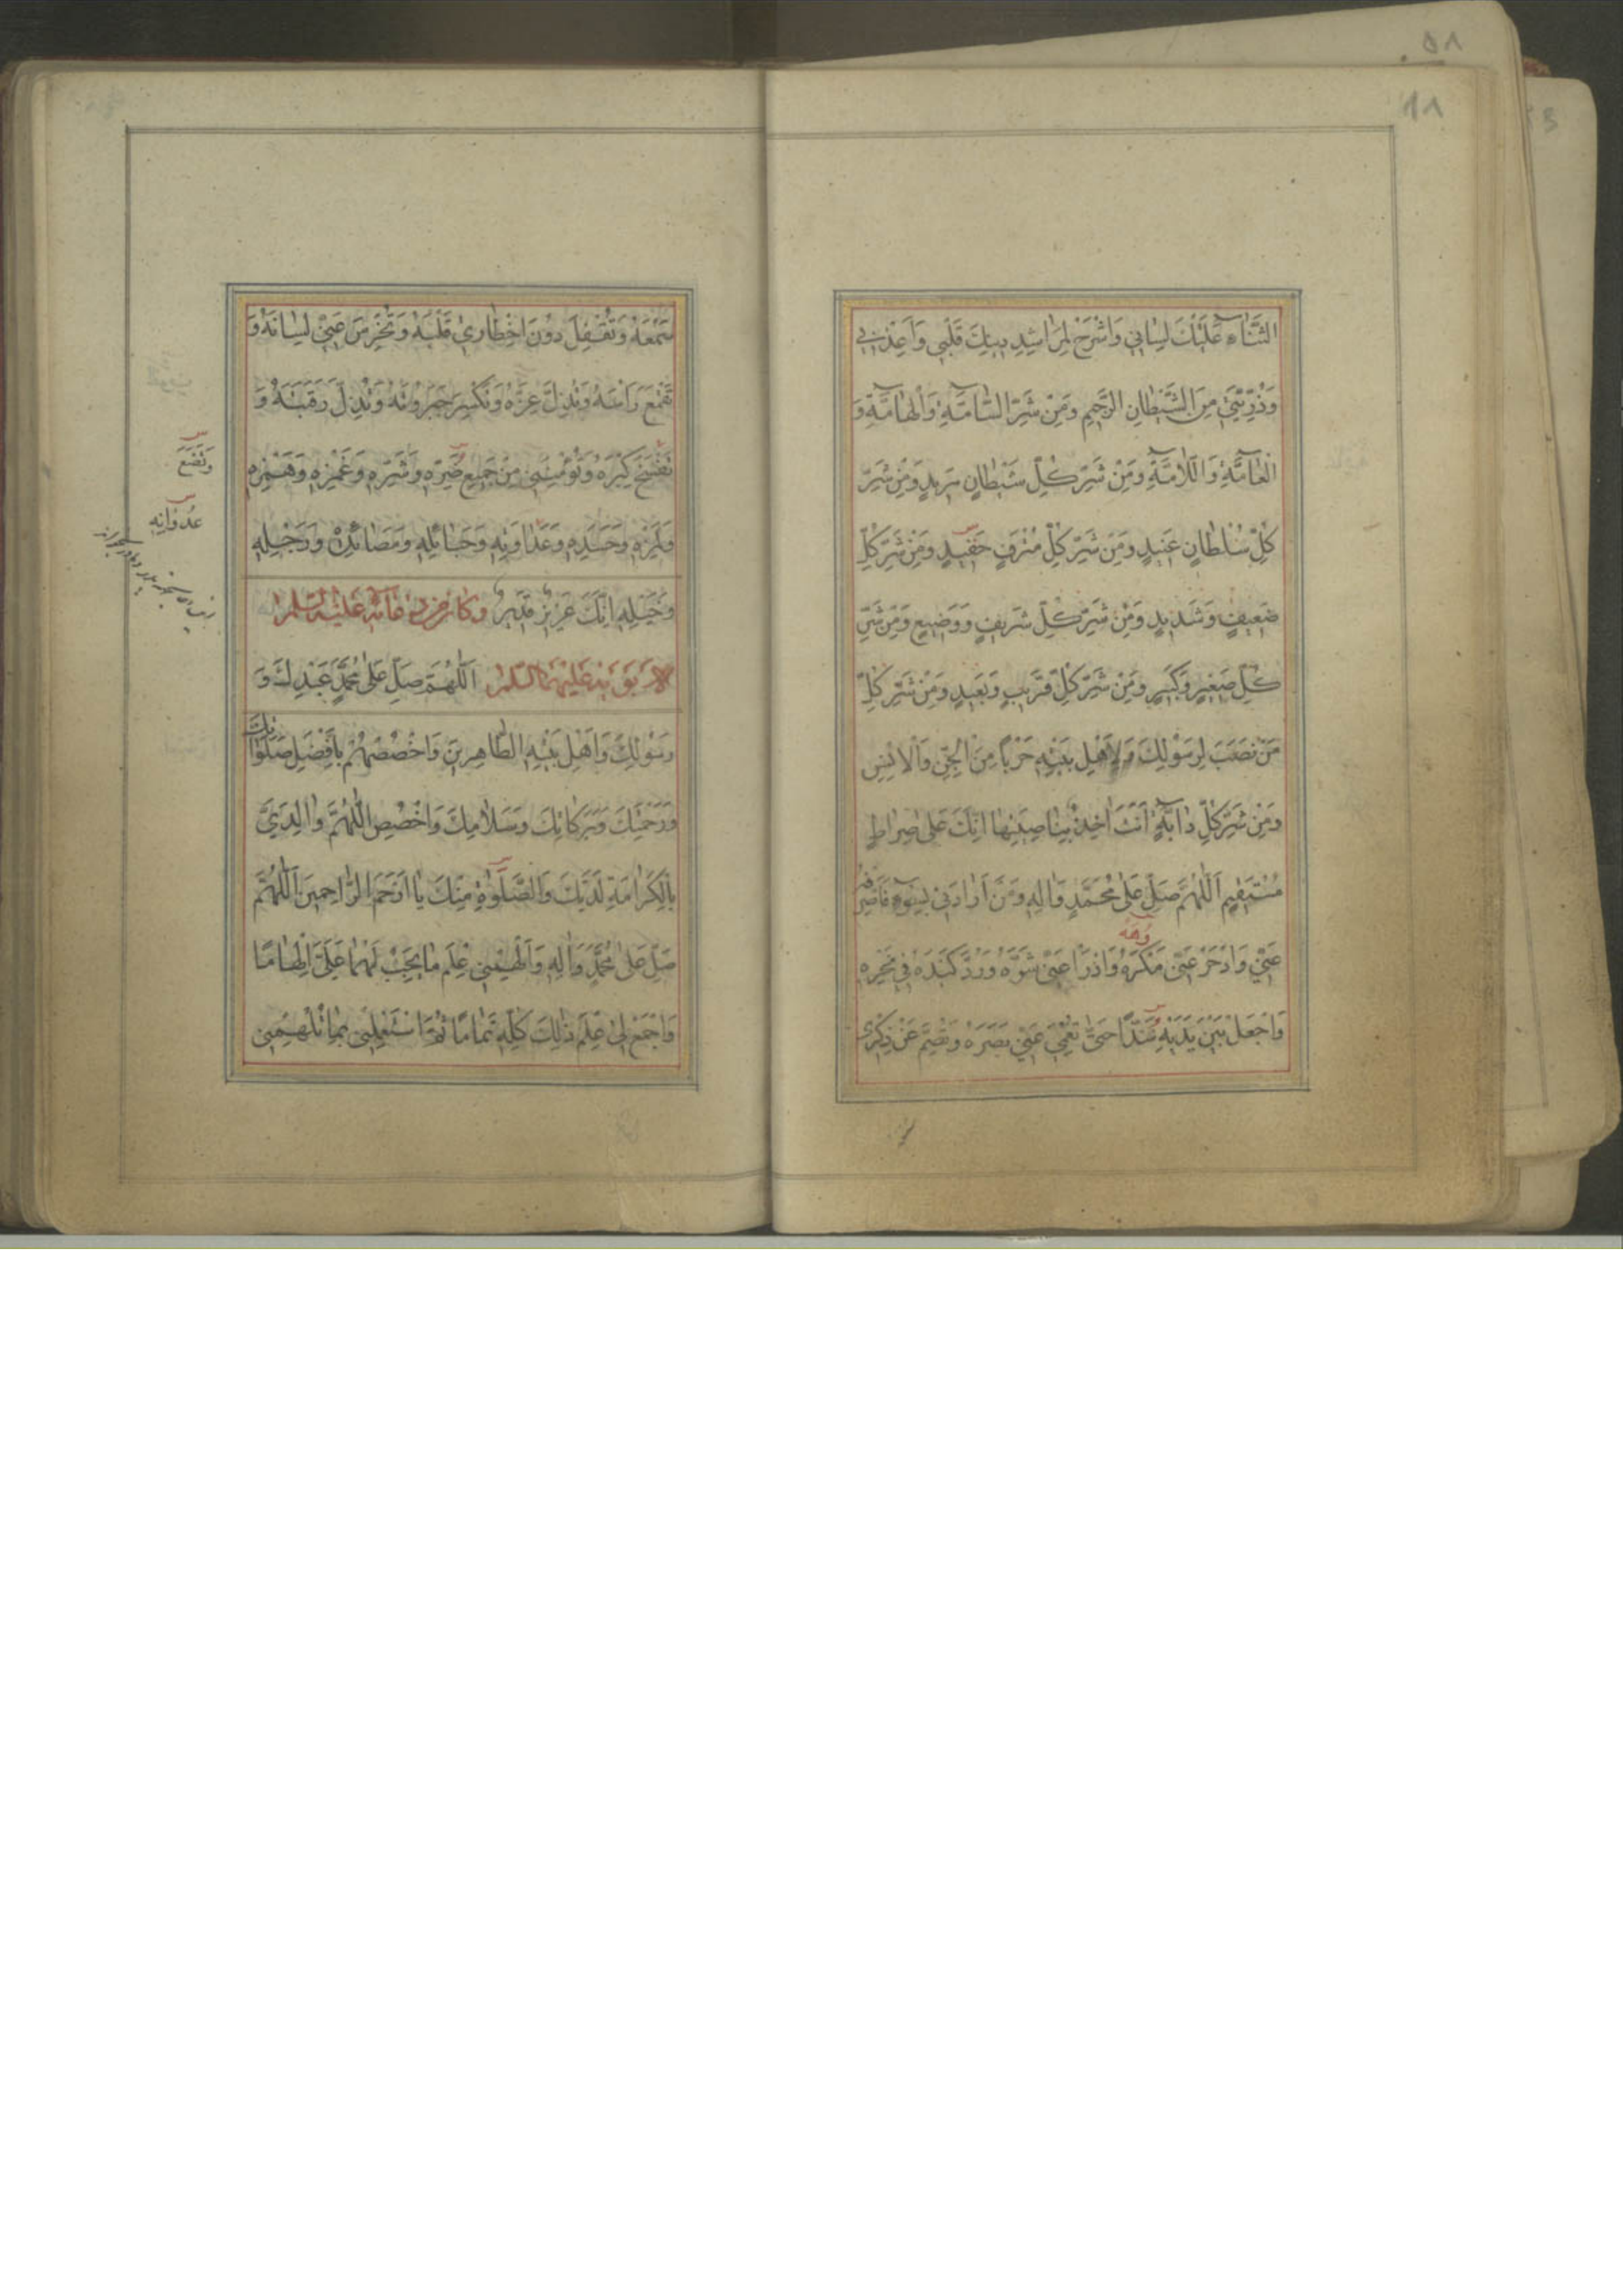 الثَّنَاءِ عَلَيْكَ لِسَانِي وَاشْرَحْ لِمَرَاشِدِ دِينِكَ قَلْبِي وَاَعِذْنِي
وَذُرِّيَّتِي مِنَ الشَّيْطَانِ الرَّجِيمِ وَمِنْ شَرِّ السَّامَّةِ وَالْهَامَّةِ وَ
الْعَامَّةِ وَاللَّامَّةِ وَمِنْ شَرِّ كُلِّ شَيْطَانٍ مَرِيدٍ وَمِنْ شَرِّ
كُلِّ سُلْطَانٍ عَنِيدٍ وَمِنْ شَرِّ كُلِّ مُتْرَفٍ حَفِيدٍ وَمِنْ شَرِّ كُلِّ
ضَعِيفٍ وَشَدِيدٍ وَمِنْ شَرِّ كُلِّ شَرِيفٍ وَوَضِيعٍ وَمِنْ شَرِّ
كُلِّ صَغِيرٍ وَكَبِيرٍ وَمِنْ شَرِّ كُلِّ قَرِيبٍ وَبَعِيدٍ وَمِنْ شَرِّ كُلِّ
مَنْ نَصَبَ لِرَسُولِكَ وَلِاَهْلِ بَيْتِهِ حَرْبًا مِنَ الْجِنِّ وَالْاِنْسِ
وَمِنْ شَرِّ كُلِّ دَابَّةٍ اَنْتَ اٰخِذٌ بِنَاصِيَتِهَا اِنَّكَ عَلٰى صِرَاطٍ
مُسْتَقِيمٍ اَللّٰهُمَّ صَلِّ عَلٰى مُحَمَّدٍ وَاٰلِهِ وَمَنْ اَرَادَنِي بِسُوءٍ فَاصْرِفْهُ
عَنِّي وَادْحَرْ عَنِّي مَكْرَهُ وَادْرَأْ عَنِّي شَرَّهُ وَرُدَّ كَيْدَهُ فِي نَحْرِهِ
وَاجْعَلْ بَيْنَ يَدَيْهِ سُدًّا حَتّٰى تُعْمِيَ عَنِّي بَصَرَهُ وَتُصِمَّ عَنْ ذِكْرِي
سَمْعَهُ وَتُقْفِلَ دُونَ اِخْطَارِي قَلْبَهُ وَتُخْرِسَ عَنِّي لِسَانَهُ وَ
تَقْمَعَ رَاْسَهُ وَتُذِلَّ عِزَّهُ وَتَكْسِرَ جَبَرُوتَهُ وَتُذِلَّ رَقَبَتَهُ وَ
تَفْسَخَ كِبْرَهُ وَتُؤْمِنَنِي مِنْ جَمِيعِ ضَرِّهِ وَشَرِّهِ وَغَمْزِهِ وَهَمْزِهِ
وَتَضَعَ
وَلَمْزِهِ وَحَسَدِهِ وَعَدَاوَتِهِ وَحَبَائِلِهِ وَمَصَائِدِهِ وَرَجْلِهِ
وَخَيْلِهِ اِنَّكَ عَزِيزٌ قَدِيرٌ وكان من دعائه عليه السلام
لابويه عليهما السلام اَللّٰهُمَّ صَلِّ عَلٰى مُحَمَّدٍ عَبْدِكَ وَ
رَسُولِكَ وَاَهْلِ بَيْتِهِ الطَّاهِرِينَ وَاخْصُصْهُمْ بِاَفْضَلِ صَلَوَاتِكَ
وَرَحْمَتِكَ وَبَرَكَاتِكَ وَسَلَامِكَ وَاخْصُصِ اللّٰهُمَّ وَالِدَيَّ
بِالْكَرَامَةِ لَدَيْكَ وَالصَّلٰوةِ مِنْكَ يَا اَرْحَمَ الرَّاحِمِينَ اَللّٰهُمَّ
صَلِّ عَلٰى مُحَمَّدٍ وَاٰلِهِ وَاَلْهِمْنِي عِلْمَ مَا يَجِبُ لَهُمَا عَلَيَّ اِلْهَامًا
وَاجْمَعْ لِي عِلْمَ ذٰلِكَ كُلِّهِ تَمَامًا ثُمَّ اسْتَعْمِلْنِي بِمَا تُلْهِمُنِي